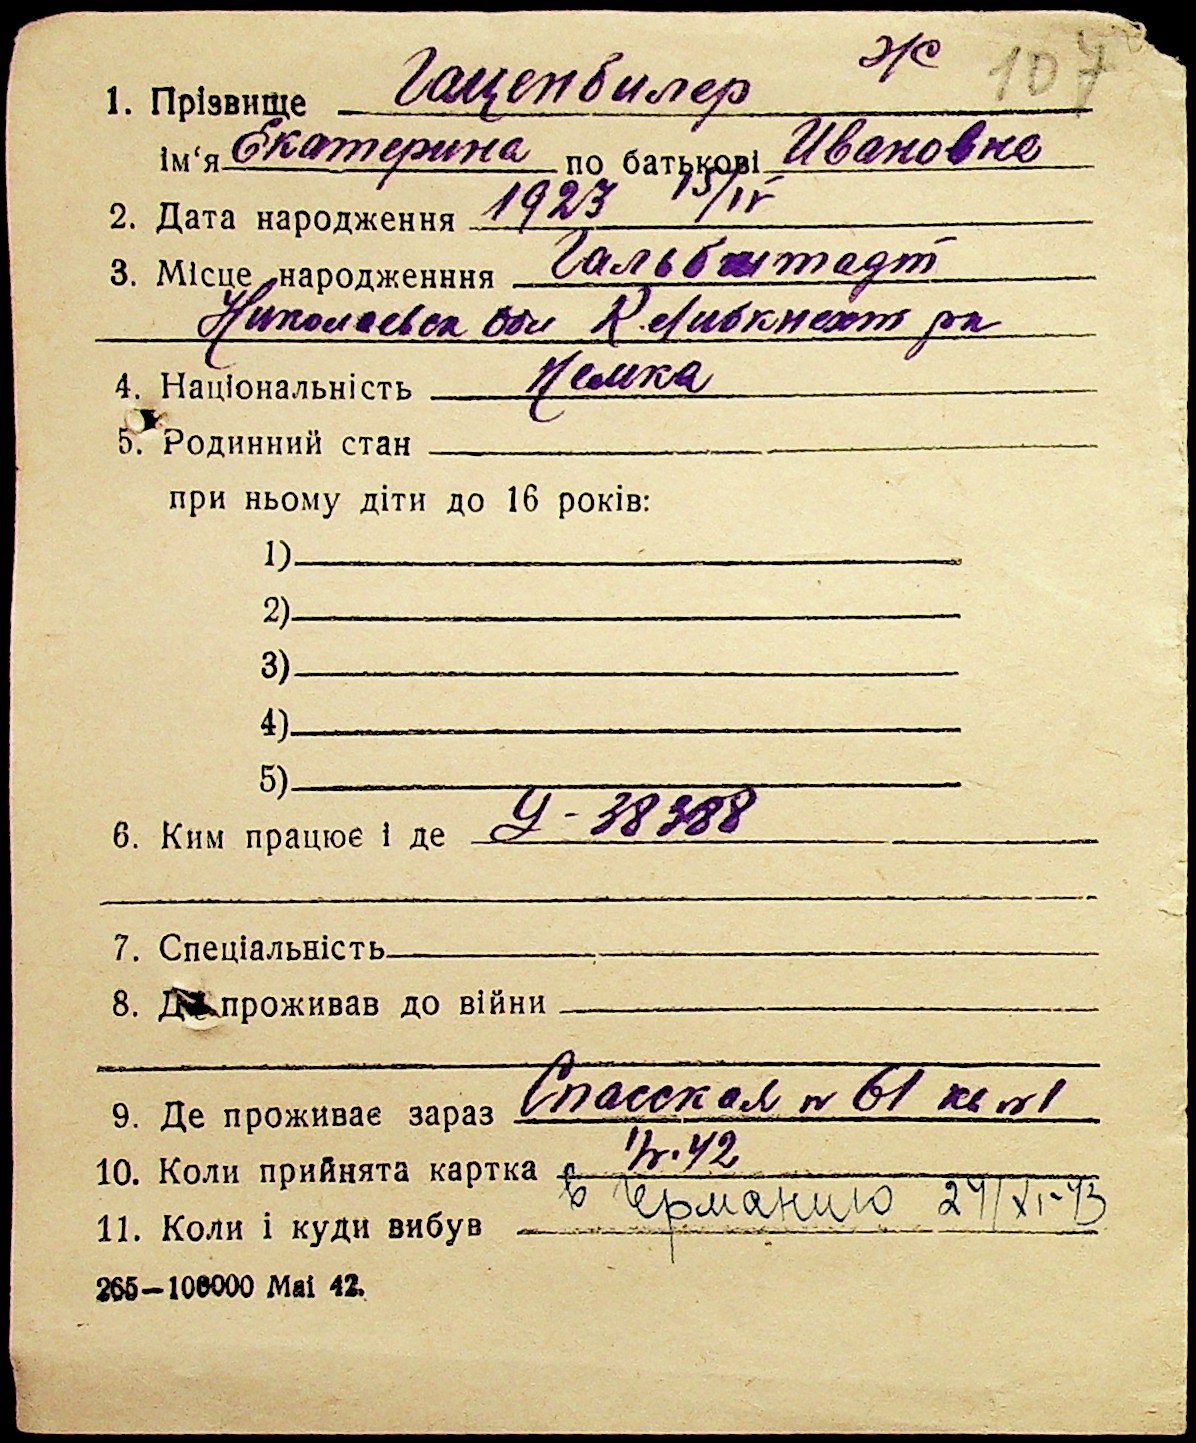 ж 107
1. Прізвище Гаценбилер
ім‘я Екатерина по батькові Ивановна
2. Дата народження 1923 15/IV
3. Місце народженння Гальбштадт
Николаевск обл К. Либкнехт рн
4. Національність Немка
5. Родинний стан
при ньому діти до 16 років:
1)
2)
3)
4)
5)
6. Ким працює і де У-38388
7. Спеціальність
8. Де проживав до війни
9. Де проживає зараз Спасская № 61 кв № 1
10. Коли прийнята картка 42
11. Коли і куди вибув в Германию 24/XI-43
265—100000 Маі 42.